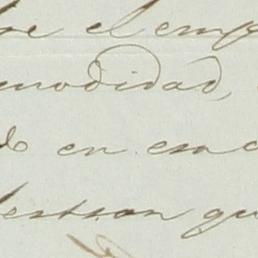 el emp
modidad,
en esa
estran qu